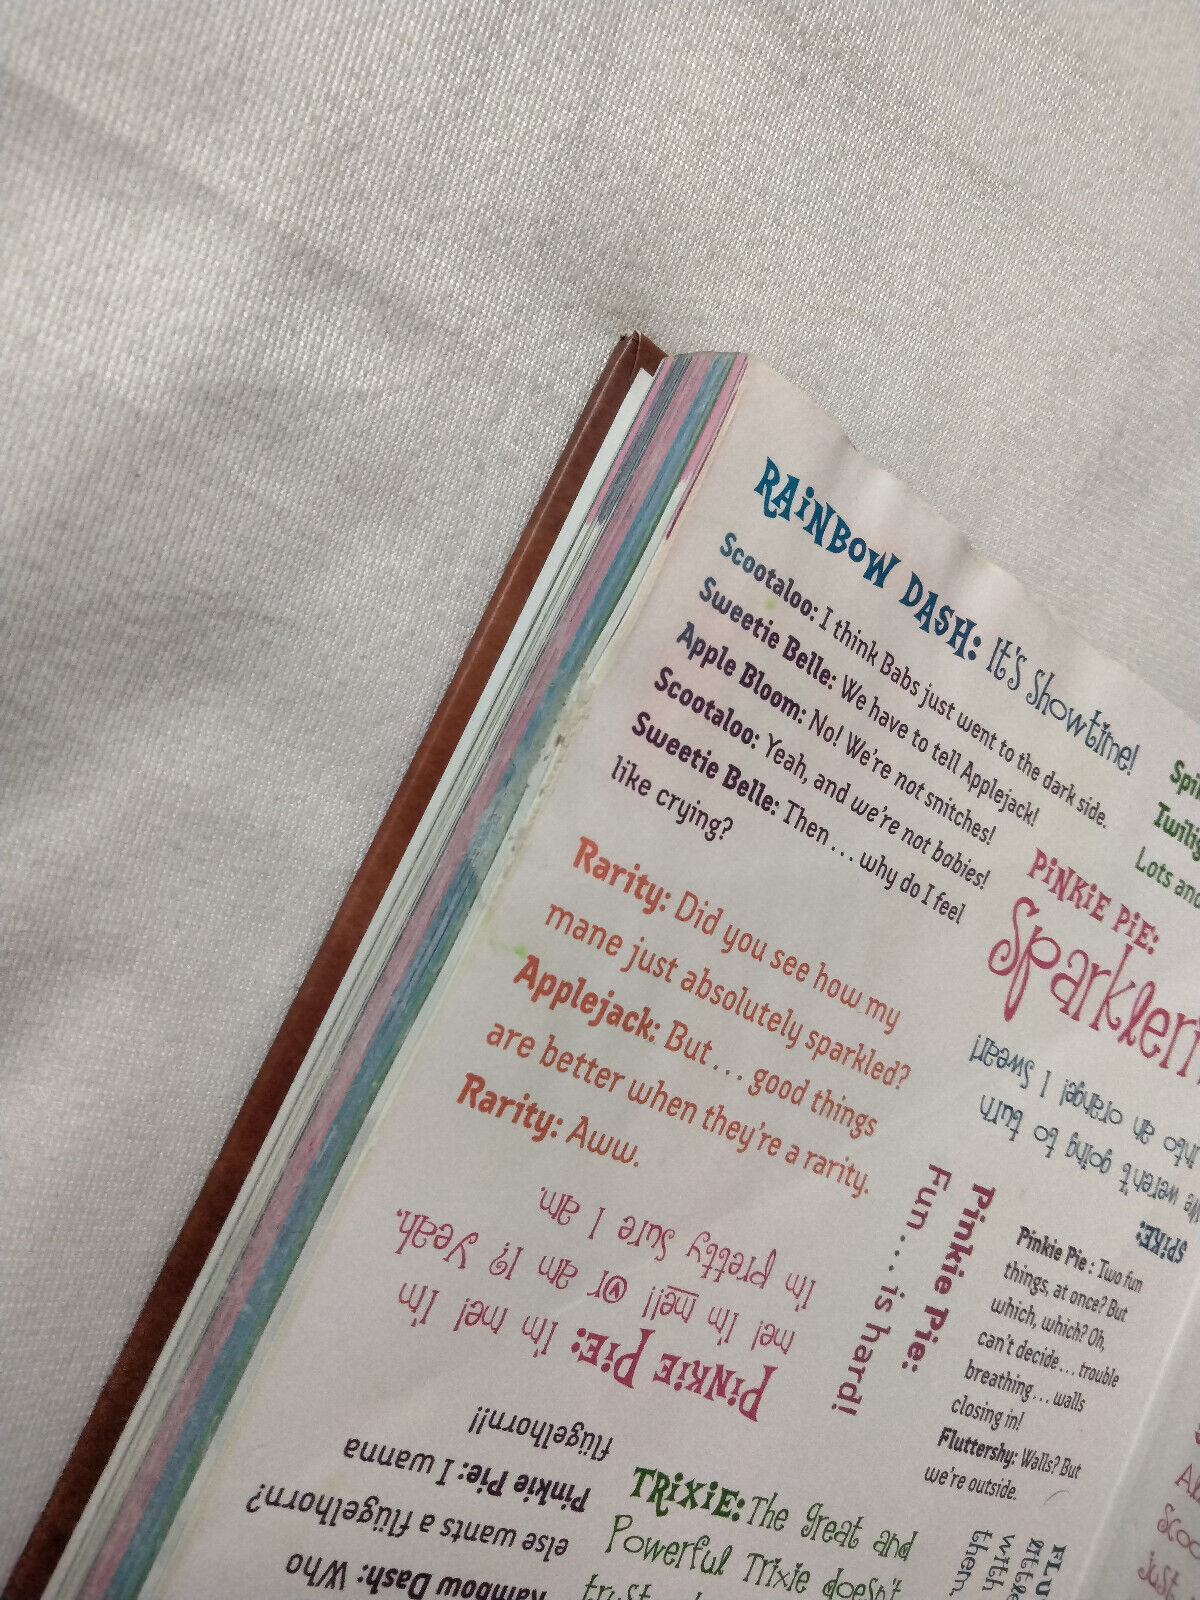 RAINBOW DASH: It's showtime!
Scootaloo: I think Babs just went to the dark side.
Sweetie Belle: We have to tell Applejack!
Apple Bloom: No! We're not snitches!
Scootaloo: Yeah, and we're not babies!
Sweetie Belle: Then... why do I feel
like crying?
Rarity: Did you see how my
mane just absolutely sparkled?
Applejack: But... good things
are better when they're a rarity.
Rarity: Aww.
PINKIE PIE: I'm me! I'm
me! I'm me!! Or am I? Yeah.
I'm pretty sure I am.
Rainbow Dash: Who
else wants a flügelhorn?
Pinkie Pie: I wanna
flügelhorn!!
TRIXIE: The Great and
Powerful Trixie doesn't
trust
Pinkie Pie:
Fun... is hard!
Pinkie Pie : Two fun
things, at once? But
which, which? Oh,
can't decide... trouble
breathing... walls
closing in!
Fluttershy: Walls? But
we're outside.
PINKIE PIE:
SPIKE:
We weren't going to turn
into an orange! I swear!
Lots and
with
them.
just